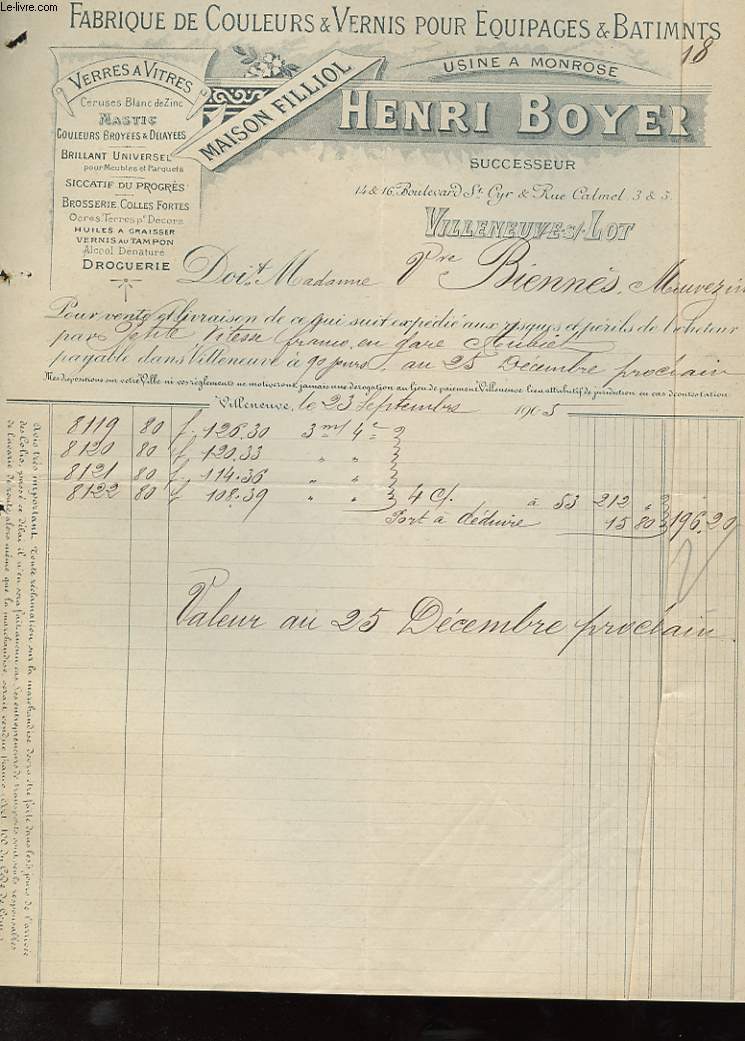 Le-livre.com
FABRIQUE DE COULEURS & VERNIS POUR EQUIPAGES & BATIMNTS
18
USINE A MONROSE
VERRES A VITRES
Ceruses Blanc de Zinc
MASTIC
COULEURS BROYÉES & DÉLAYÉES
BRILLANT UNIVERSEL
pour Meubles et Parquets
SICCATIF DU PROGRÈS
BROSSERIE. COLLES FORTES
Ocres. Terres pr Décors
HUILES A GRAISSER
VERNIS AU TAMPON
Alcool Dénaturé
DROGUERIE
MAISON FILLIOL
HENRI BOYER
SUCCESSEUR
14 & 16, Boulevard St Cyr & Rue Calmel 3 & 5.
VILLENEUVE-S/-LOT
Doit Madame Vve Biennès, Mauvezin
Pour vente et livraison de ce qui suit expédié aux risques et périls de l'acheteur
par Petite Vitesse franco en gare
payable dans Villeneuve à 90 jours, au 25 Décembre prochain
Mes dispositions sur votre Ville ni vos règlements ne motiveront jamais une dérogation au lieu de paiement Villeneuve lieu attributif de juridiction en cas de contestation
Villeneuve, le 23 Septembre 1905
8119 80 f. 126.30 3 m/ 4 c
8120 80 f. 120.33 " "
8121 80 f. 114.36 " "
8122 80 f. 108.39 " " 4 C/. à 53 212 "
Port à déduire 15 80 196.20
Valeur au 25 Décembre prochain
Avis très important. Toute réclamation sur la marchandise devra être faite dans les 3 jours de l'arrivée
des Colis, passé ce délai il n'en sera fait aucun cas. Les entrepreneurs de transports sont seuls responsables
de l'avarie de route, alors même que la marchandise serait vendue franco (Art. 100 du Code de Com.)